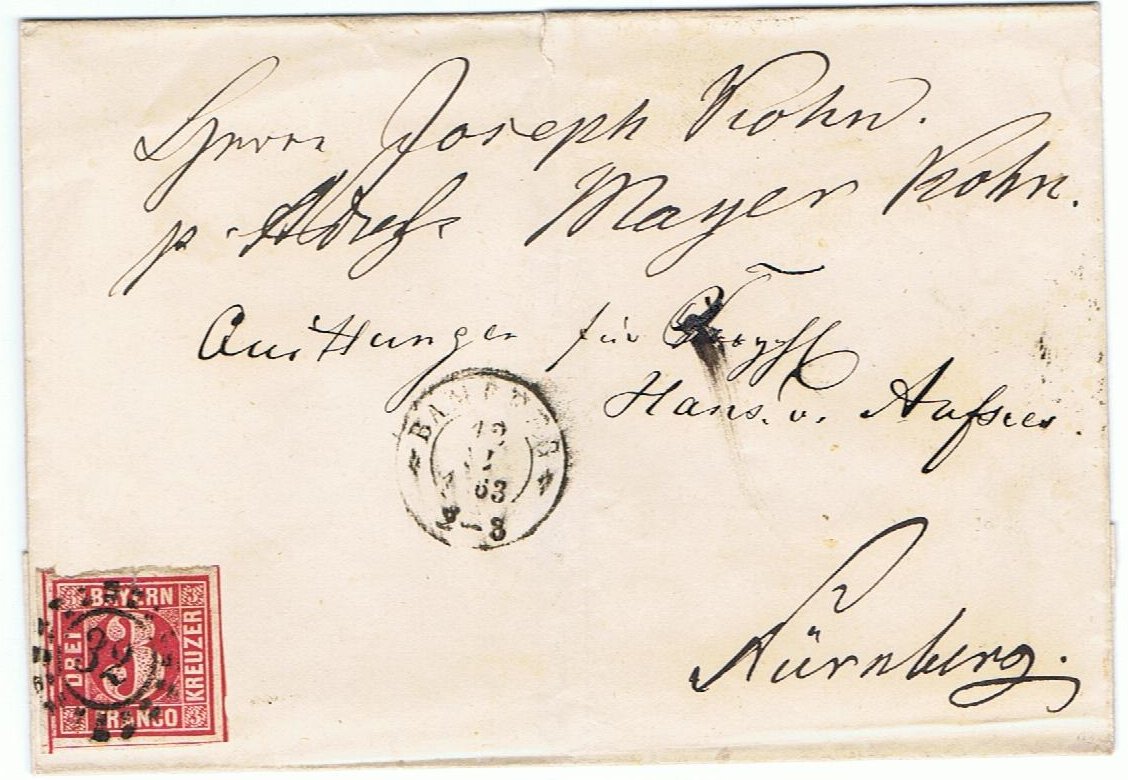 Herrn Joseph Kohn.
p. Adreße Mayer Kohn.
Quittungen für
Hans. v. Aufsees.
BAMBERG
12
63
- 8
Nürnberg.
BAYERN
DREI
3
KREUZER
FRANCO
32